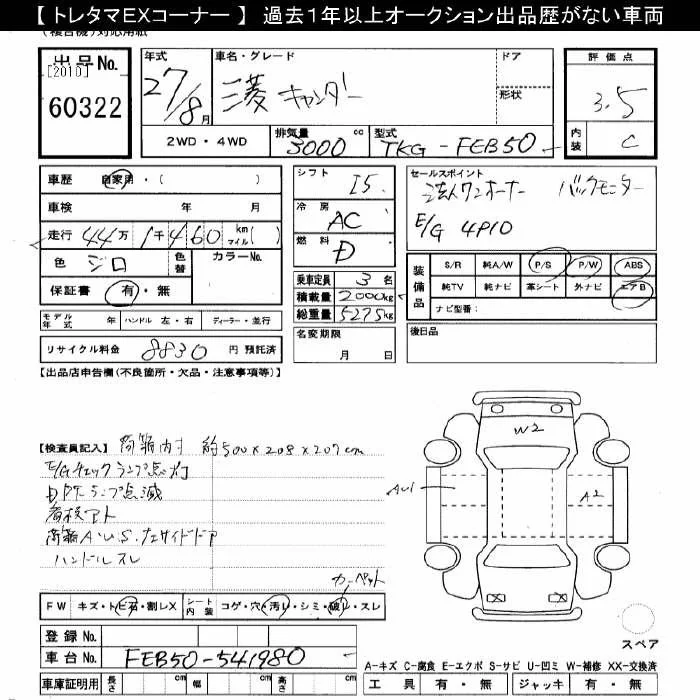 【 トレタマEXコーナー 】 過去１年以上オークション出品歴がない車両
出品No.
[2010]
60322
年式
27/8月
車名・グレード
三菱 キャンター
ドア
形状
評価点
3.5
内装
C
2WD・4WD
排気量
3000 cc
型式
TKG-FEB50
車歴 自家用・( )
車検 年 月
走行 44万 1千 460 km マイル( )
色 シロ 色替 カラーNo.
保証書 有・無
モデル年式 年 ハンドル 左・右 ディーラー・並行
リサイクル料金 8830 円 預託済
シフト I5
冷房 AC
燃料 D
乗車定員 3 名
積載量 2000kg
総重量 5275kg
名変期限
月 日
セールスポイント
法人ワンオーナー バックモニター
E/G 4P10
装備品
S/R 純A/W P/S P/W ABS
純TV 純ナビ 革シート 外ナビ エアB
ナビ型番:
後日品
【出品店申告欄(不良箇所・欠品・注意事項等)】
【検査員記入】 荷箱内寸 約500×208×207cm
E/Gチェックランプ点灯
DPFランプ点滅
看板アト
荷箱A.U.S.
ハンドルスレ
カーペット
W2
AU1
A2
FW キズ・トビ石・割レX
シート内装 コゲ・穴・汚レ・シミ・破レ・スレ
登録No.
車台No. FEB50-541980
車庫証明用 長さ cm 幅 cm 高さ cm
スペア
A-キズ C-腐食 E-エクボ S-サビ U-凹ミ W-補修 XX-交換済
工具 有・無 ジャッキ 有・無